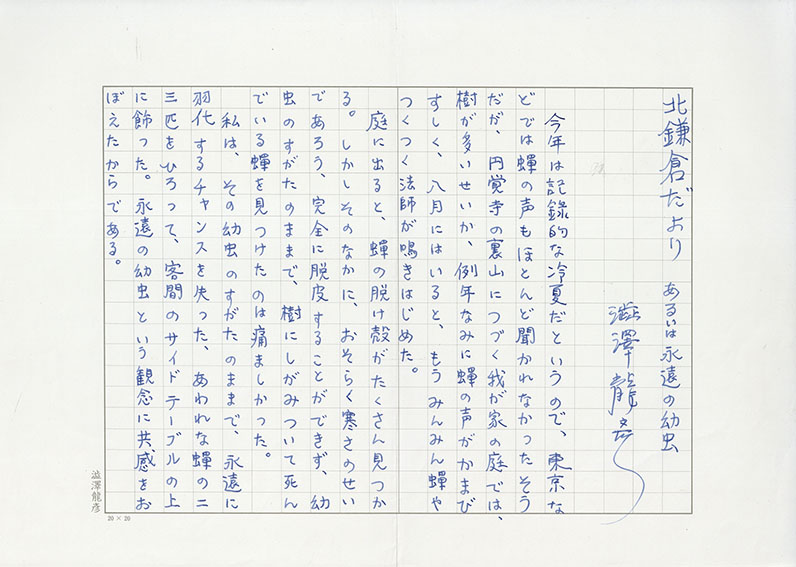 北鎌倉だより　あるいは永遠の幼虫
澁澤龍彦
今年は記録的な冷夏だというので、東京な
どでは蟬の声もほとんど聞かれなかったそう
だが、円覚寺の裏山につづく我が家の庭では、
樹が多いせいか、例年なみに蟬の声がかまび
すしく、八月にはいると、もうみんみん蟬や
つくつく法師が鳴きはじめた。
庭に出ると、蟬の脱け殻がたくさん見つか
る。しかしそのなかに、おそらく寒さのせい
であろう、完全に脱皮することができず、幼
虫のすがたのままで、樹にしがみついて死ん
でいる蟬を見つけたのは痛ましかった。
私は、その幼虫のすがたのままで、永遠に
羽化するチャンスを失った、あわれな蟬の二
三匹をひろって、客間のサイドテーブルの上
に飾った。永遠の幼虫という観念に共感をお
ぼえたからである。
澁澤龍彦
20×20